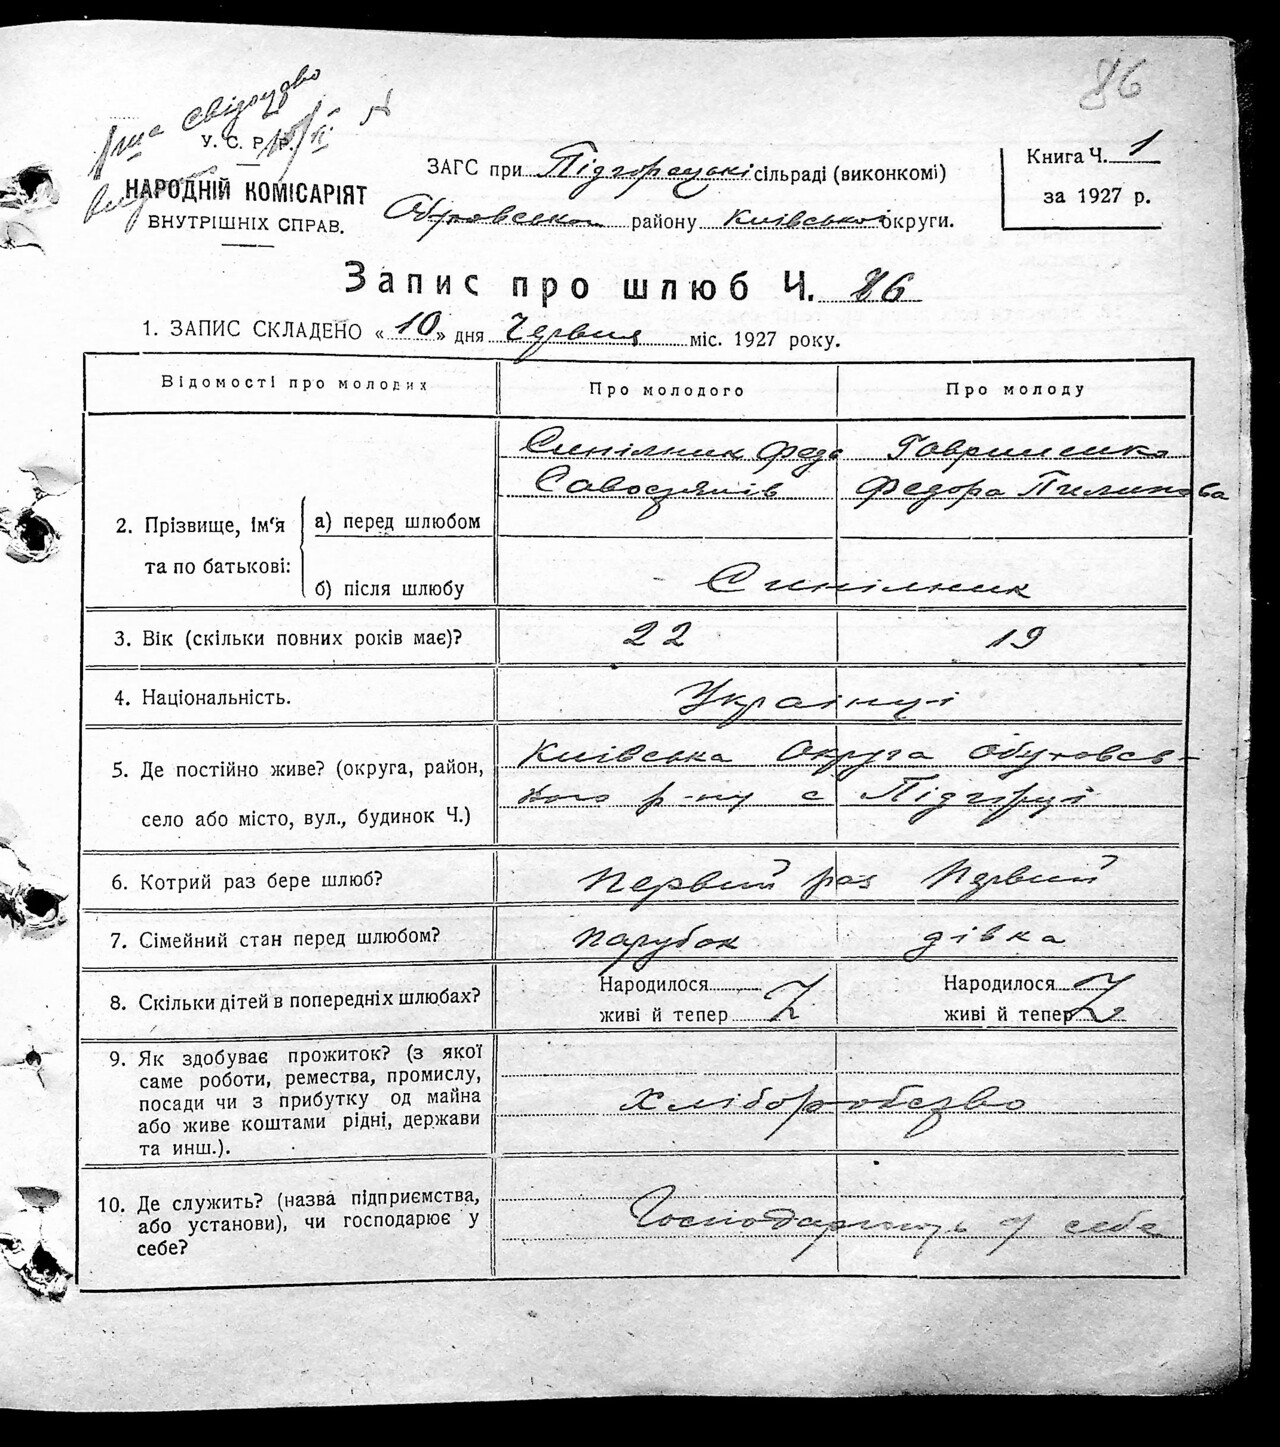 86
свідоцтво
У. С. Р. Р.
НАРОДНІЙ КОМІСАРІЯТ
ВНУТРІШНІХ СПРАВ.
ЗАГС при Підгорецькі сільраді (виконкомі)
Обуховськом району Київської округи.
Книга Ч. 1
за 1927 р.
Запис про шлюб Ч. 86
1. ЗАПИС СКЛАДЕНО « 10 » дня Червня міс. 1927 року.
Відомості про молодих Про молодого Про молоду
Синілник Федь Гавришенко
Савостянів Федора Пилипова
2. Прізвище, ім'я та по батькові: а) перед шлюбом
б) після шлюбу Синілник
3. Вік (скільки повних років має)? 22 19
4. Національність. Українці
5. Де постійно живе? (округа, район, Київська Округа Обуховсь-
село або місто, вул., будинок Ч.) кого р-ну с Підгірці
6. Котрий раз бере шлюб? Первий раз Первий
7. Сімейний стан перед шлюбом? парубок дівка
8. Скільки дітей в попередніх шлюбах? Народилося Народилося
живі й тепер живі й тепер
9. Як здобуває прожиток? (з якої
саме роботи, ремества, промислу,
посади чи з прибутку од майна Хліборобство
або живе коштами рідні, держави
та инш.).
10. Де служить? (назва підприємства,
або установи), чи господарює у Господарюють у себе
себе?